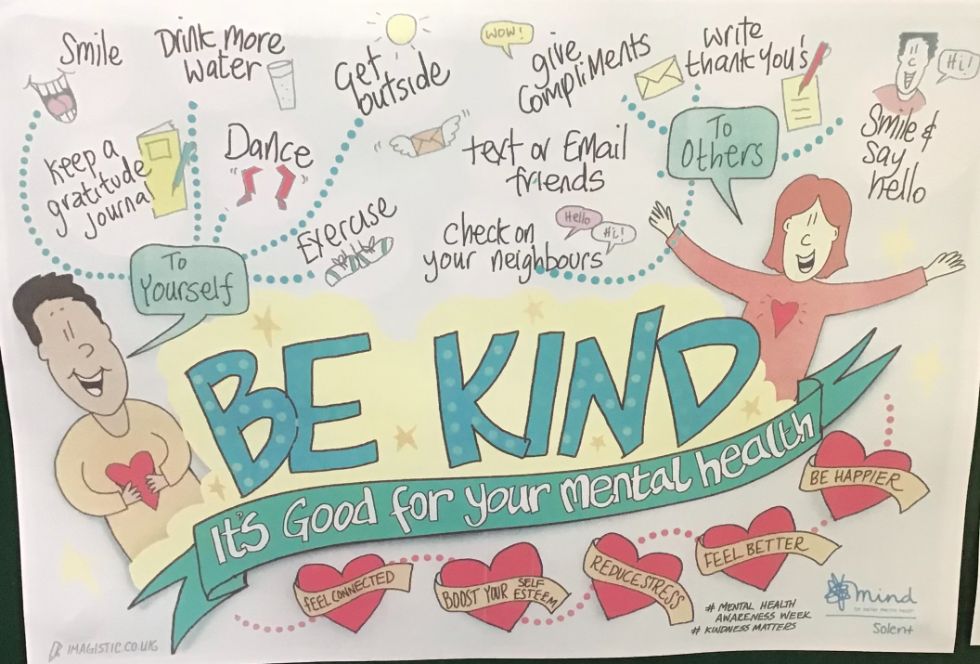 Smile
Drink more
water
Get
outside
WOW!
give
compliments
write
thank you's
Hi!
Smile &
say
hello
Keep a
gratitude
journal
Dance
text or Email
friends
To
Others
Exercise
Hello
Hi!
check on
your neighbours
To
Yourself
BE KIND
It's Good for your mental health
BE HAPPIER
FEEL BETTER
REDUCE STRESS
BOOST YOUR SELF
ESTEEM
FEEL CONNECTED
# MENTAL HEALTH
AWARENESS WEEK
# KINDNESS MATTERS
mind
for better mental health
Solent
IMAGISTIC.CO.UK